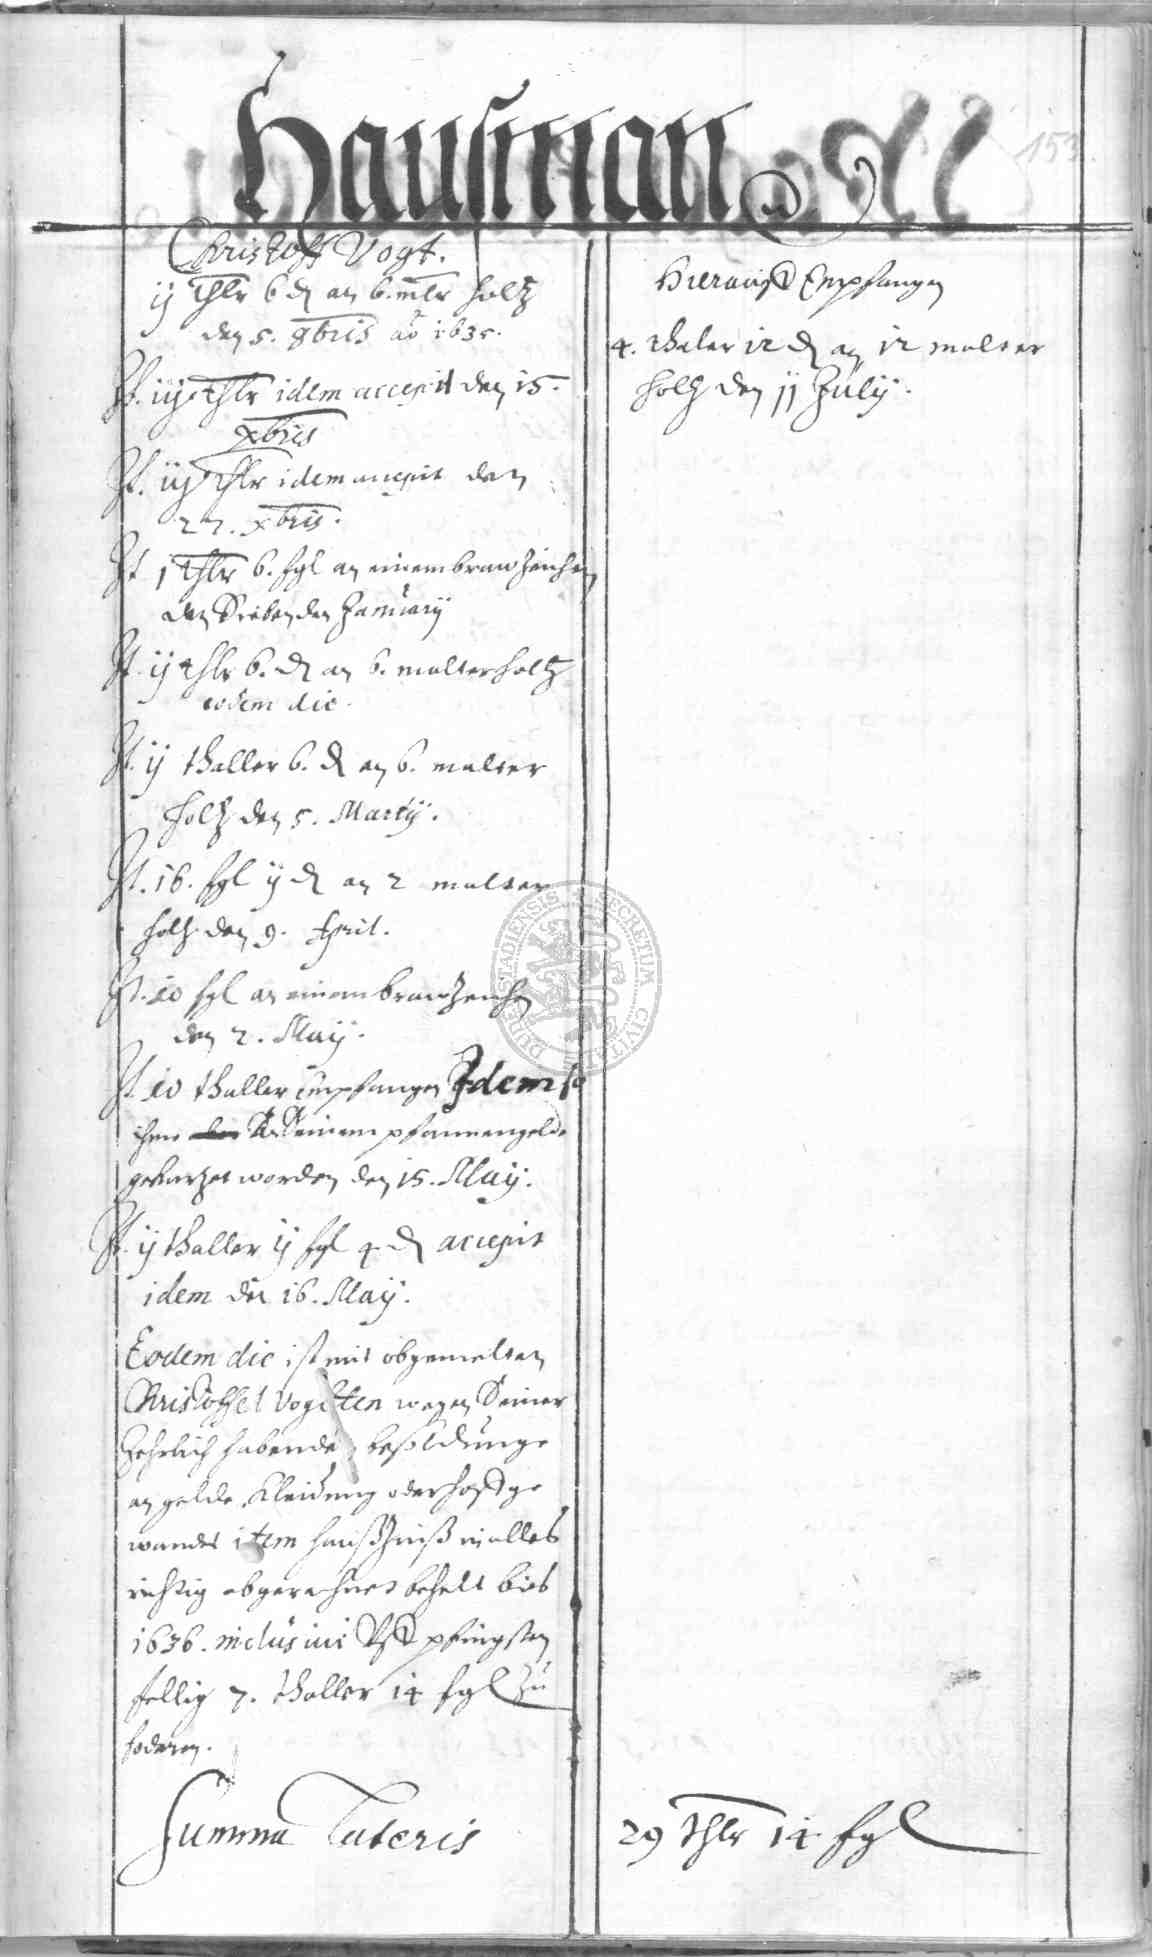 Hausman
153.
Christoff Vogt.
ij thlr 6 d an 6. mltr holtz
den 5. 9bris ao 1635.
It. iij thlr idem accepit den 15.
xbris
It. iij thlr idem accepit den
27. xbris.
It 1 thlr 6. sgl an einem brawzeichen
den Siebenden January
It. ij thlr 6. d an 6. malter holtz
eodem die.
It. ij thaller 6. d an 6. malter
holtz den 5. Martij.
It. 16. sgl ij d an 2 malter
holtz den 9. April.
It. 20 sgl an einem brawzeichen
den 2. Maij.
It. 10 thaller Empfangen Idem so
ihme an Seinem pfannengelde
gekürtzet worden den 15. Maij.
It. ij thaller ij sgl 4 d accepit
idem den 16. Maij.
Eodem die ist mit obgemelten
Christoffel Vogtten wegen Seiner
Jehrlich habende besoldunge
an gelde, Kleidung oder hoffge
wandt item haußzinß in alles
richtig abgerechnet behelt bies
1636. inclusive Uff pfingsten
fellig 7. thaller 14 sgl zu
foderen.
Summa Lateris
Hierauff Empfangen
4. thaler 12 d an 12 malter
holtz den 11 Julij.
29 thlr 14 sgl
DUDERSTADIENSIS SECRETUM CIVITATIS